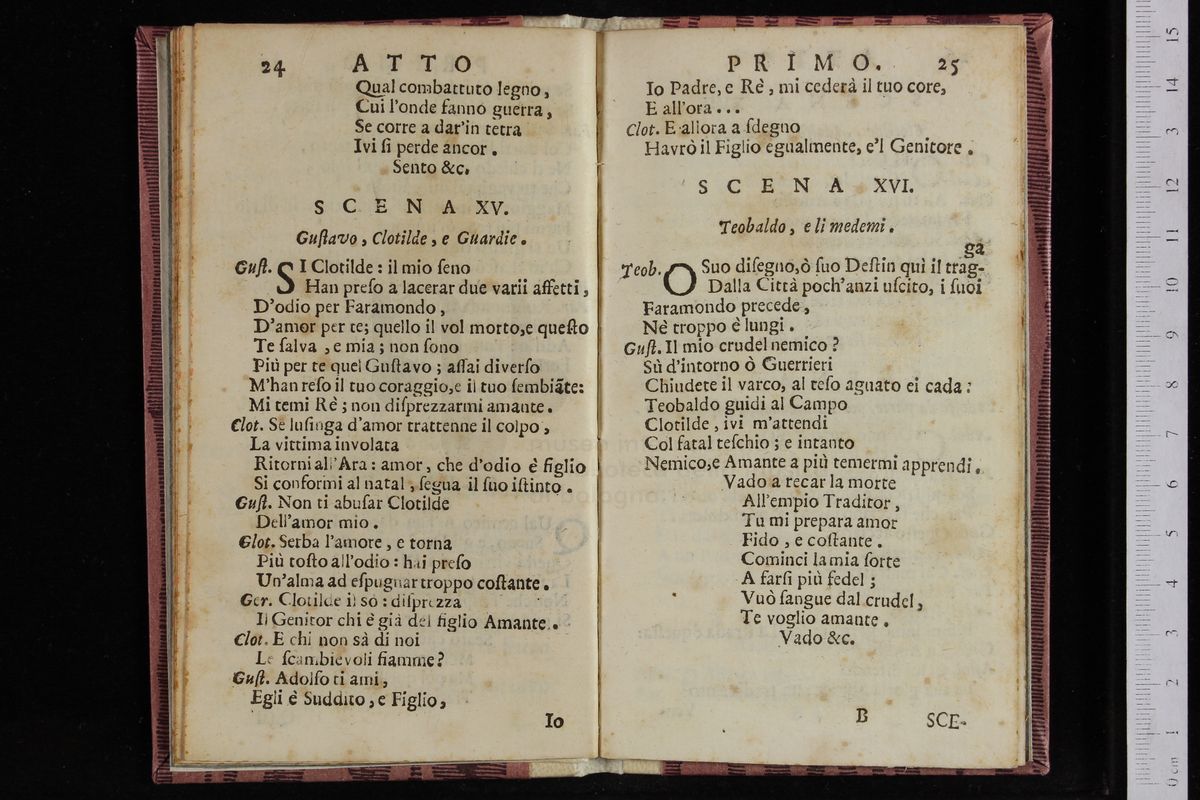 24 ATTO
Qual combattuto legno,
Cui l'onde fanno guerra,
Se corre a dar'in tetra
Ivi ſi perde ancor.
Sento &c.
SCENA XV.
Guſtavo, Clotilde, e Guardie.
Guſt. SI Clotilde: il mio ſeno
Han preſo a lacerar due varii affetti,
D'odio per Faramondo,
D'amor per te; quello il vol morto,e queſto
Te ſalva, e mia; non ſono
Più per te quel Guſtavo; aſſai diverſo
M'han reſo il tuo coraggio,e il tuo ſembiãte:
Mi temi Rè; non diſprezzarmi amante.
Clot. Se luſinga d'amor trattenne il colpo,
La vittima involata
Ritorni all'Ara: amor, che d'odio è figlio
Si conformi al natal, ſegua il ſuo iſtinto.
Guſt. Non ti abuſar Clotilde
Dell'amor mio.
Clot. Serba l'amore, e torna
Più toſto all'odio: hai preſo
Un'alma ad eſpugnar troppo coſtante.
Ger. Clotilde il sò: diſprezza
Il Genitor chi è già del figlio Amante.
Clot. E chi non sà di noi
Le ſcambievoli fiamme?
Guſt. Adolfo ti ami,
Egli è Suddito, e Figlio,
Io
PRIMO. 25
Io Padre, e Rè, mi cederà il tuo core,
E all'ora...
Clot. E allora a ſdegno
Havrò il Figlio egualmente, e'l Genitore.
SCENA XVI.
Teobaldo, e li medemi.
ga
Teob. O Suo diſegno,ò ſuo Deſtin quì il trag-
Dalla Città poch'anzi uſcito, i ſuoi
Faramondo precede,
Nè troppo è lungi.
Guſt. Il mio crudel nemico?
Sù d'intorno ò Guerrieri
Chiudete il varco, al teſo aguato ei cada:
Teobaldo guidi al Campo
Clotilde, ivi m'attendi
Col fatal teſchio; e intanto
Nemico,e Amante a più temermi apprendi.
Vado a recar la morte
All'empio Traditor,
Tu mi prepara amor
Fido, e coſtante.
Cominci la mia ſorte
A farſi più fedel;
Vuò ſangue dal crudel,
Te voglio amante.
Vado &c.
B SCE-